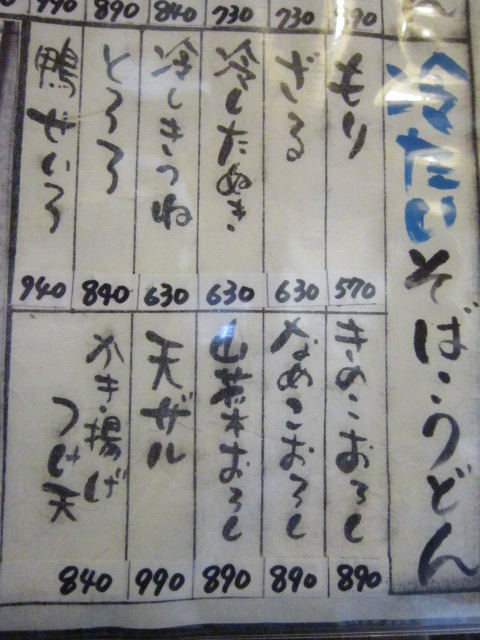 冷たいそば・うどん
890 840 730 730
もり
570
ざる
630
冷したぬき
630
冷しきつね
630
とろろ
840
鴨せいろ
940
きのこおろし
890
なめこおろし
890
山菜おろし
890
天ザル
990
かき揚げ
つけ天
840